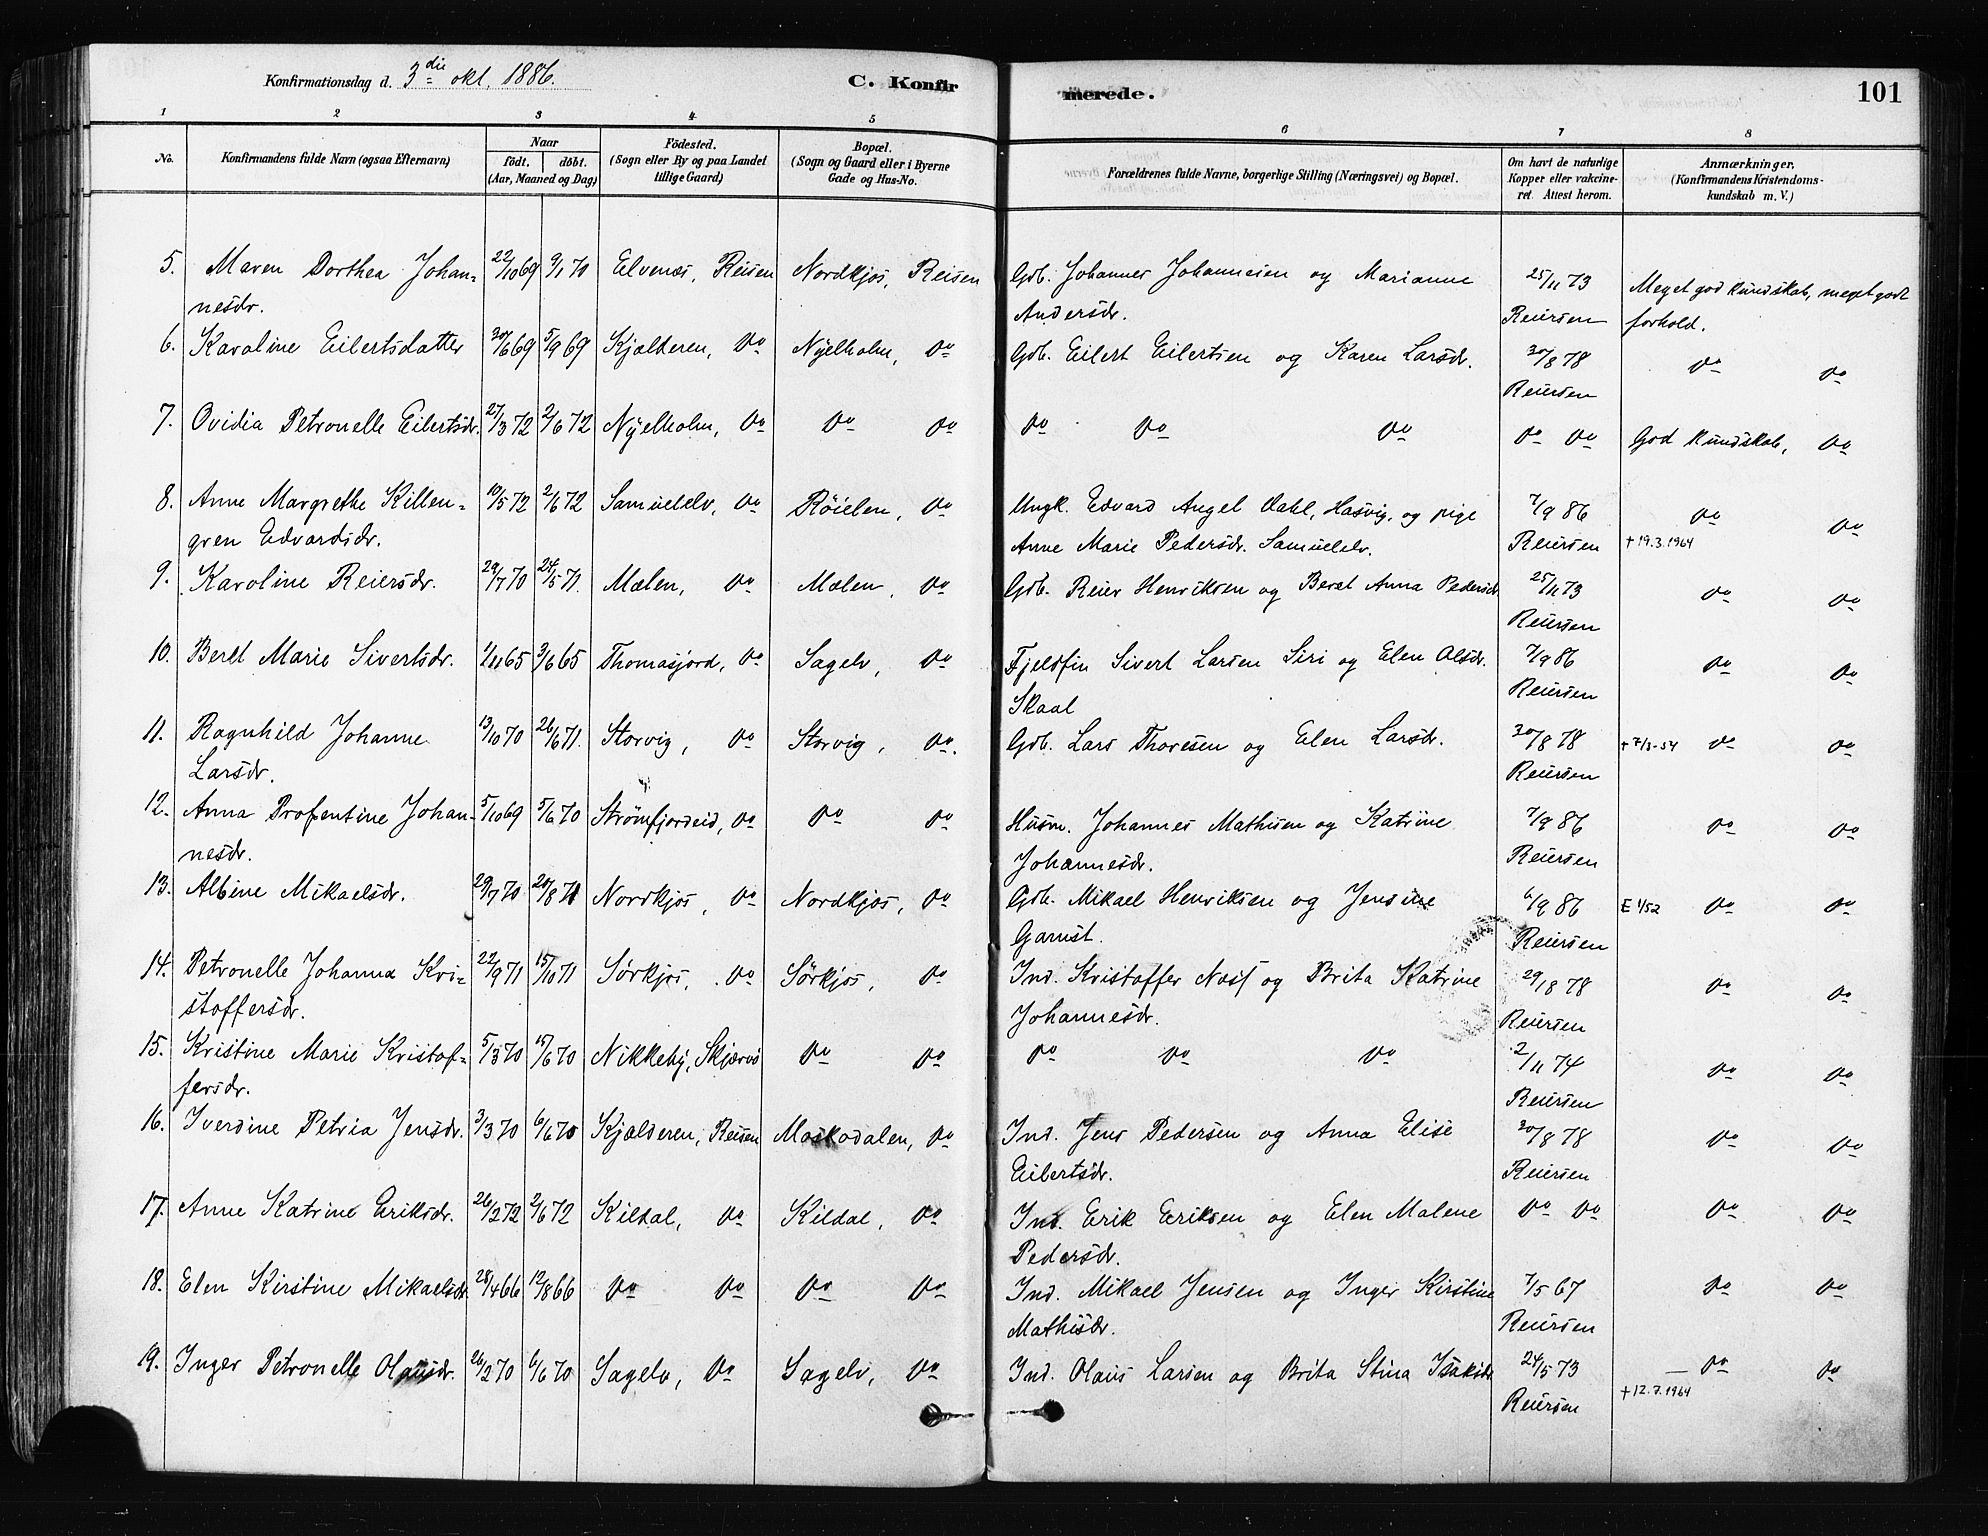 Konfirmationsdag d. 3die okt. 1886.
C. Konfirmerede.
101
1 2 3 4 5 6 7 8
No. Konfirmandens fulde Navn (ogsaa Efternavn) Naar födt. döbt. (Aar, Maaned og Dag) Födested. (Sogn eller By og paa Landet tillige Gaard) Bopæl. (Sogn og Gaard eller i Byerne Gade og Hus-No. Forældrenes fulde Navne, borgerlige Stilling (Næringsvei) og Bopæl. Om havt de naturlige Kopper eller vakcineret. Attest herom. Anmærkninger. (Konfirmandens Kristendomskundskab m. V.)
5. Maren Dorthea Johan- 22/10 69 9/1 70 Elvenæs, Reisen Nordkjos, Reisen Gdb. Johannes Johannesen og Marianne 25/11 73 Meget god kundskab, meget godt
nesdr. Andersdr. Reiersen forhold.
6. Karoline Eilertsdatter 30/6 69 5/9 69 Kjælderen, do Nyelholm, do Gdb. Eilert Eilertsen og Karen Larsdr. 30/8 78 do do
Reiersen
7. Ovidia Petronelle Eilertsdr. 27/3 72 2/6 72 Nyelholm, do do do do do do do do God kundskab, do
8. Anne Margrethe Killen- 10/5 72 2/6 72 Samuelelv, do Röielen, do Ungk. Edvard Angel Dahl, Hasvig, og pige 7/9 86 do do
gren Edvardsdr. Anne Marie Pedersdr. Samuelelv. Reiersen + 19.3.1964
9. Karoline Reiersdr. 29/7 70 24/5 71. Mælen, do Mælen, do Gdb. Reier Henriksen og Beret Anna Pedersdr 25/11 73 do do
Reiersen
10. Beret Marie Sivertsdr. 1/4 65 3/6 65 Thomasjord, do Sagelv, do Fjeldfin Sivert Larsen Siri og Elen Olsdr. 7/9 86 do do
Skaal Reiersen
11. Ragnhild Johanne 13/10 70 26/6 71. Storvig, do Storvig, do. Gdb. Lars Thoresen og Elen Larsdr. 30/8 78 + 7/3-54 do do
Larsdr. Reiersen
12. Anna Profentine Johan- 5/10 69 5/6 70 Strömfjordeid, do do do Husm. Johannes Mathisen og Katrine 7/9 86 do do
nesdr. Johannesdr. Reiersen
13. Albine Mikaelsdr. 29/7 70 20/8 71 Nordkjos, do Nordkjos, do Gdb. Mikael Henriksen og Jensine 6/9 86 E 1/52 do do
Garnst. Reiersen
14. Petronelle Johanna Kri- 22/9 71 15/10 71 Sörkjos, do Sörkjos, do Ind. Kristoffer Næss og Brita Katrine 29/8 78 do do
stoffersdr. Johannesdr. Reiersen
15. Kristine Marie Kristof- 5/3 70 15/6 70 Nikkeby, Skjærvö do do do do do 2/11 74 do do
fersdr. Reiersen
16. Iverdine Petria Jensdr. 3/3 70 6/6 70 Kjælderen, Reisen Moskodalen, do Ind. Jens Pedersen og Anna Elise 30/8 78 do do
Eilertsdr. Reiersen
17. Anne Katrine Eriksdr. 26/2 72 2/6 72 Kildal, do Kildal, do Ind. Erik Eriksen og Elen Malene do do do do
Pedersdr.
18. Elen Kirstine Mikaelsdr 28/4 66 12/8 66 do do do do Ind. Mikael Jensen og Inger Kirstine 7/5 67 do do
Mathisdr. Reiersen
19. Inger Petronelle Olausdr. 26/2 70 6/6 70 Sagelv, do Sagelv, do Ind. Olaus Larsen og Brita Stina Isaksdr 24/5 73 — do do
Reiersen + 12.7.1964